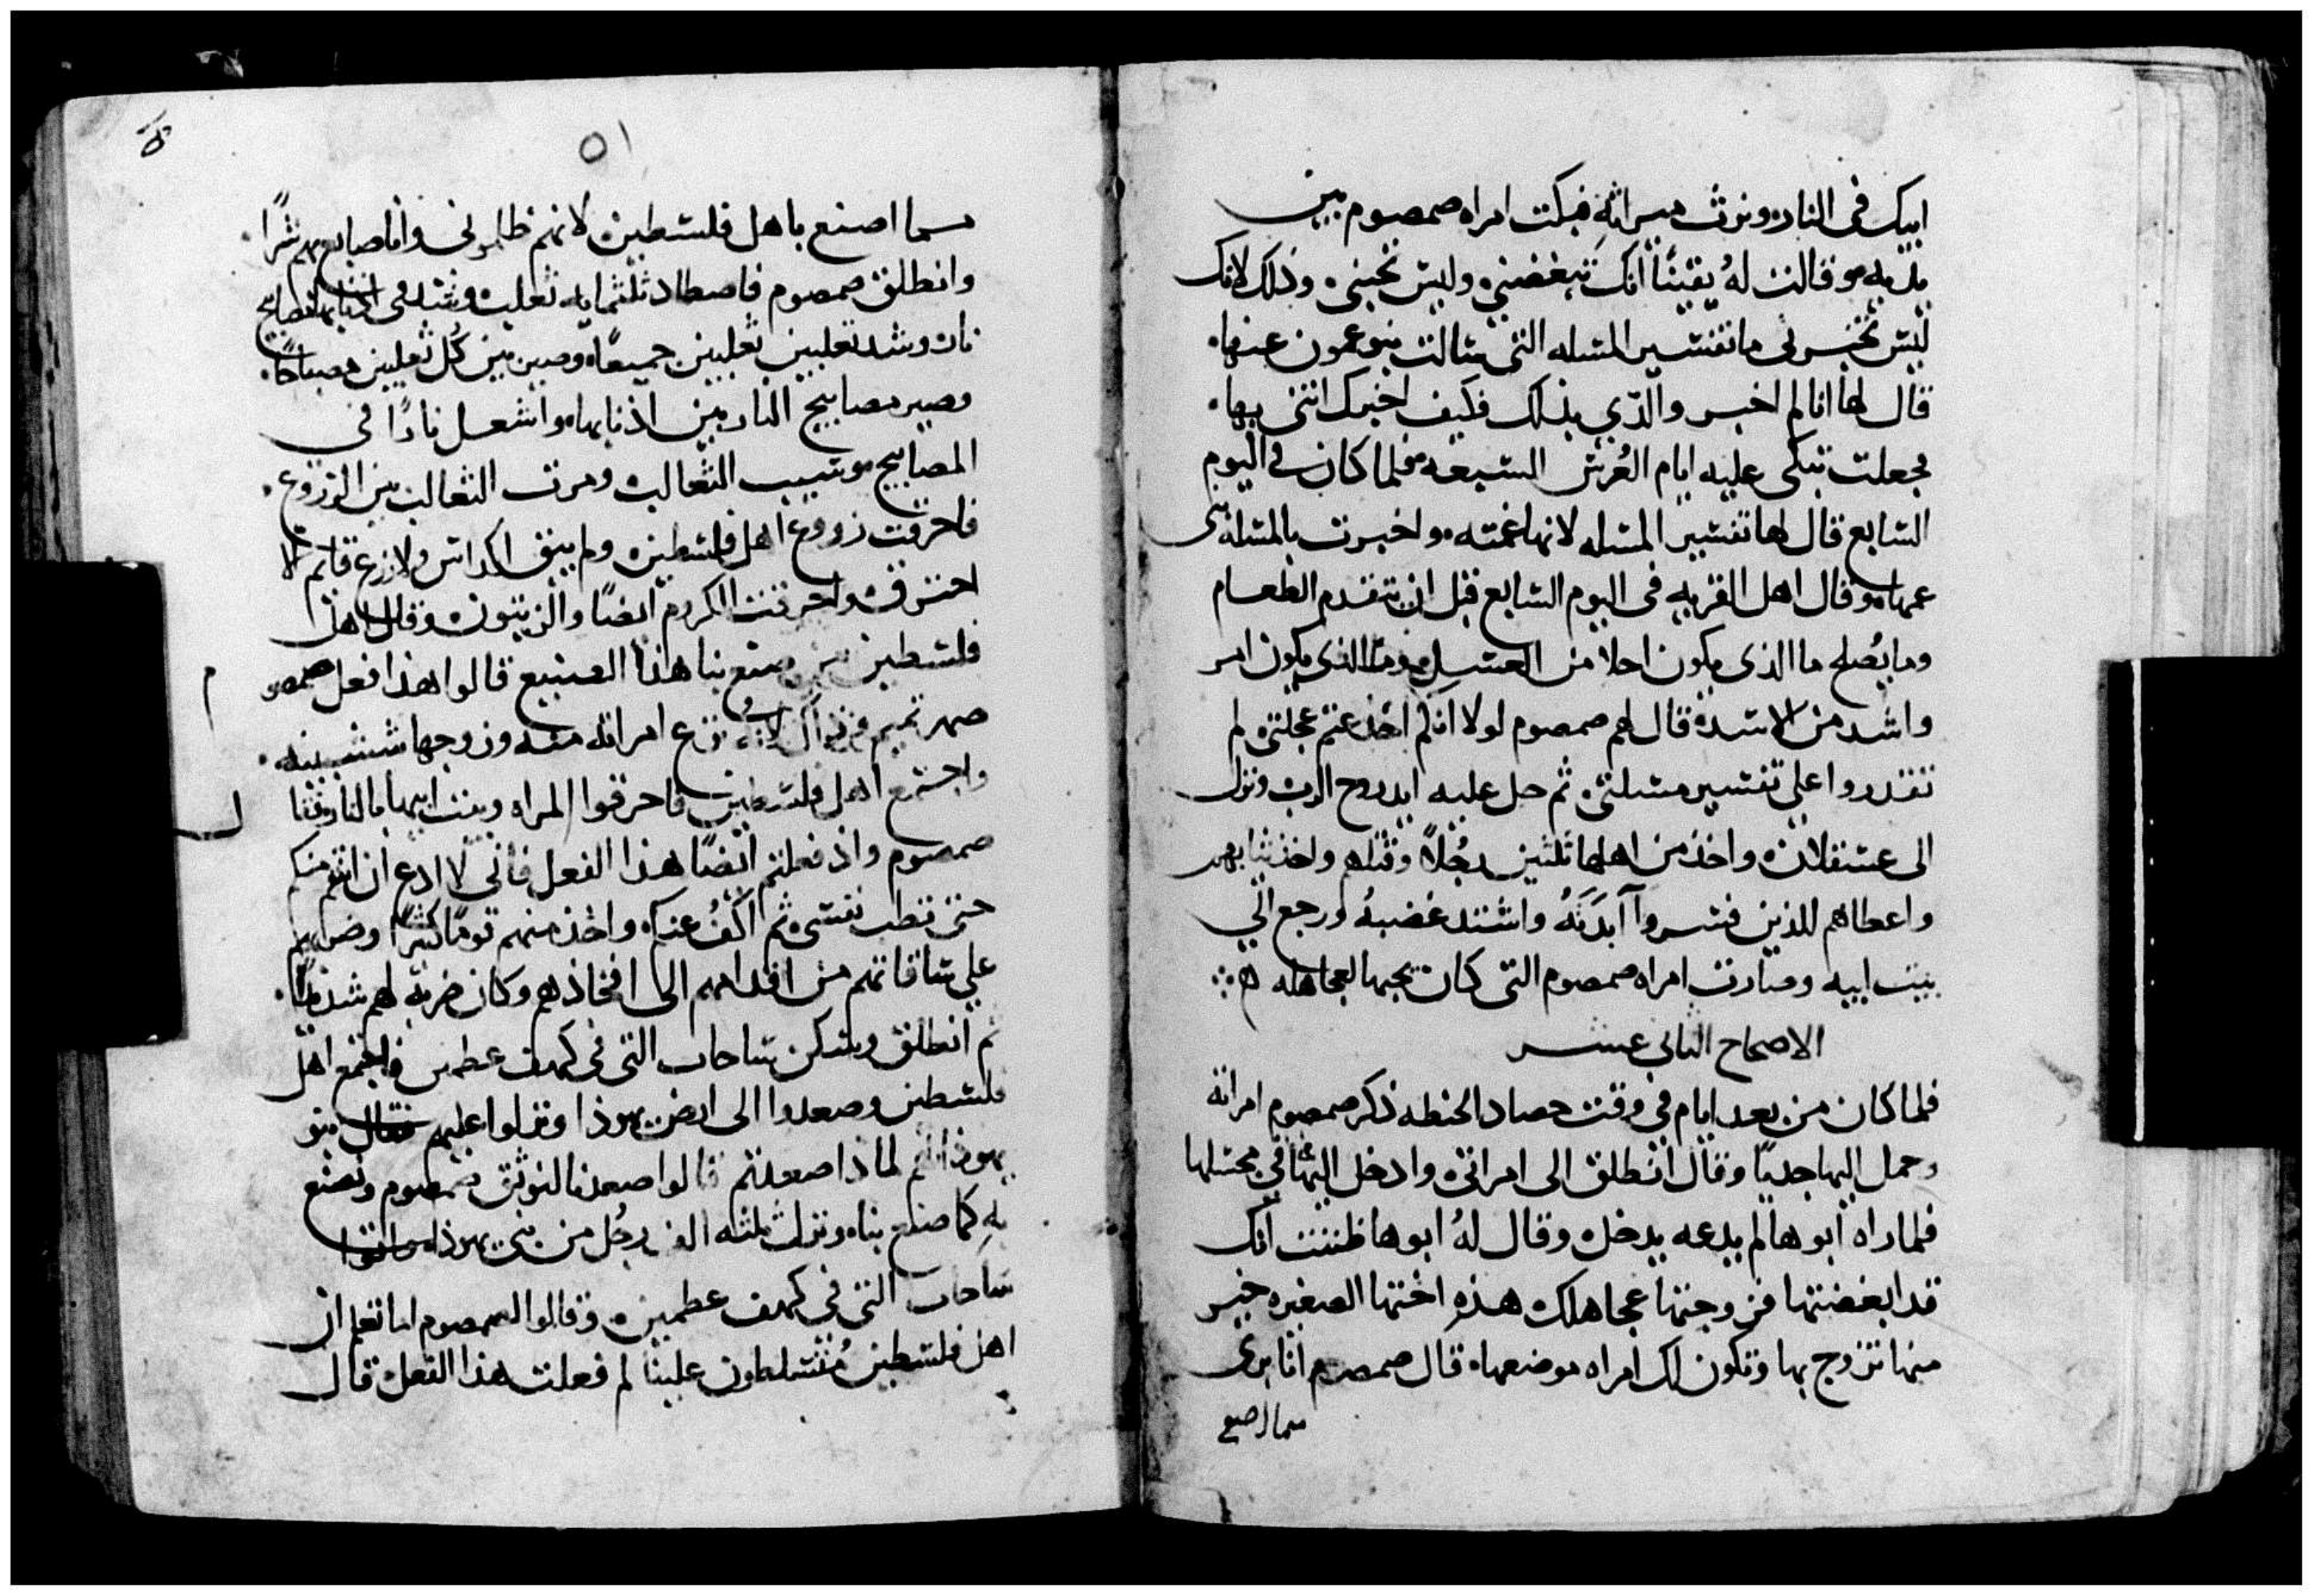 ابيك في النار ونرث ميراثه فبكت امراه صمصوم بين
يديه وقالت لهُ يقيناً انك تبغضني وليس تحبني وذلك لانك
ليس تخبرني ما تفسير المسله التي سالت بنو عمون عنها
قال لها انا لم اخبر والدّي بذلك فكيف اخبرك انتي بها
فجعلت تبكي عليه ايام العُرس السبعه فلما كان في اليوم
السابع قال لها تفسير المسله لانها غمته واخبرت بالمسله بني
عمها وقال اهل القريه في اليوم السابع قبل ان يتقدم الطعام
وما يُصلح ما الذي يكون احلا من العسل وما الذي يكون امر
واشد من الاسد قال لهم صمصوم لولا انكم اخدعتم عجلتي لم
تقدروا علي تفسير مسلتي ثم حل عليه ايد روح الرب ونزل
الى عسقلان واخذ من اهلها ثلثين رجُلاً وقتلهم واخذ ثيابهم
واعطاهم للذين فسروا آبدَتَهُ واشتد غضبهُ ورجع الي
بيت ابيه وصارت امراه صمصوم التي كان يحبها لعجاهله
الاصحاح الثاني عشر
فلما كان من بعد ايام في وقت حصاد الحنطه ذكر صمصوم امراته
وحمل اليها جديًا وقال انطلق الى امراتي وادخل اليها في مجسلها
فلما راه ابوها لم يدعه يدخل وقال لهُ ابوها ظننت انك
قد ابغضتها فزوجتها عجاهلك هذه اختها الصغيره خير
منها تزوج بها وتكون لك امراه موضعها قال صمصوم انا بري
مما اصنع
٥١
مما اصنع باهل فلسطين لانهم ظلموني وانا صانع بهم شرًا
وانطلق صمصوم فاصطاد ثلثمايه ثعلب وشد في اذنابها مصابيح
نار وشد ثعلبين ثعلبين جميعًا وصير بين كُل ثعلبين مصباحًا
وصير مصابيح النار بين اذنابها واشعل نارًا في
المصابيح وسيب الثعالب ومرت الثعالب بين الزروع
فاحرقت زروع اهل فلسطين ولم يبق اكداس ولا زرع قايم الا
احترق واحرقت الكروم ايضًا والزيتون وقال اهل
فلسطين من صنع بنا هذا الصنيع قالوا هذا فعل صمصوم
صهر تميم لانه نزع امراته منه وزوجها شبينه
واجتمع اهل فلسطين فاحرقوا المراه وبيت ابيها بالنار فقال
صمصوم واذ فعلتم ايضًا هذا الفعل فاني لا ادع ان انتقم منكم
حتى تطب نفسي ثم اكُف عنكم واخذ منهم قومًا كثيرًا وضربهم
علي ساقاتهم من اقدامهم الى افخاذهم وكان ضربه لهم شديدًا
ثم انطلق وسكن ساحاب التي في كهف عطمين فاجتمع اهل
فلسطين وصعدوا الى ارض يهوذا ونزلوا عليهم فقال بنو
يهوذا لهم لما ذا صعدتم قالوا صعدنا لنوثق صمصوم ونصنع
به كما صنع بنا ونزل ثلثه الف رجُل من بني يهوذا واتوا
ساحاب التي في كهف عطمين وقالوا لصمصوم اما تعلم ان
اهل فلسطين مُتسلطون علينا لم فعلت هذا الفعل قال